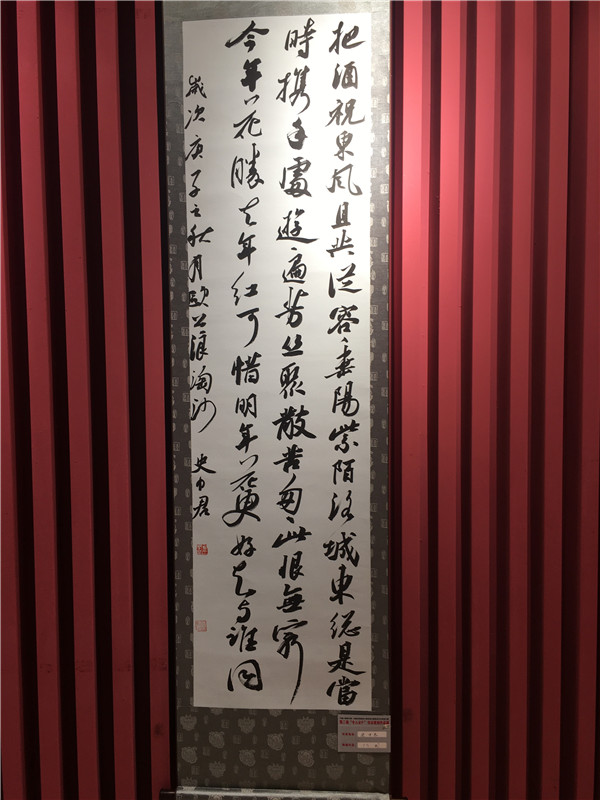 把酒祝東風且共從容垂陽紫陌洛城東総是當
時携手處遊遍芳丛聚散苦匆匆此恨無窮
今年花勝去年紅可惜明年花更好知与誰同
歲次庚子之秋月欧公浪淘沙 史 君